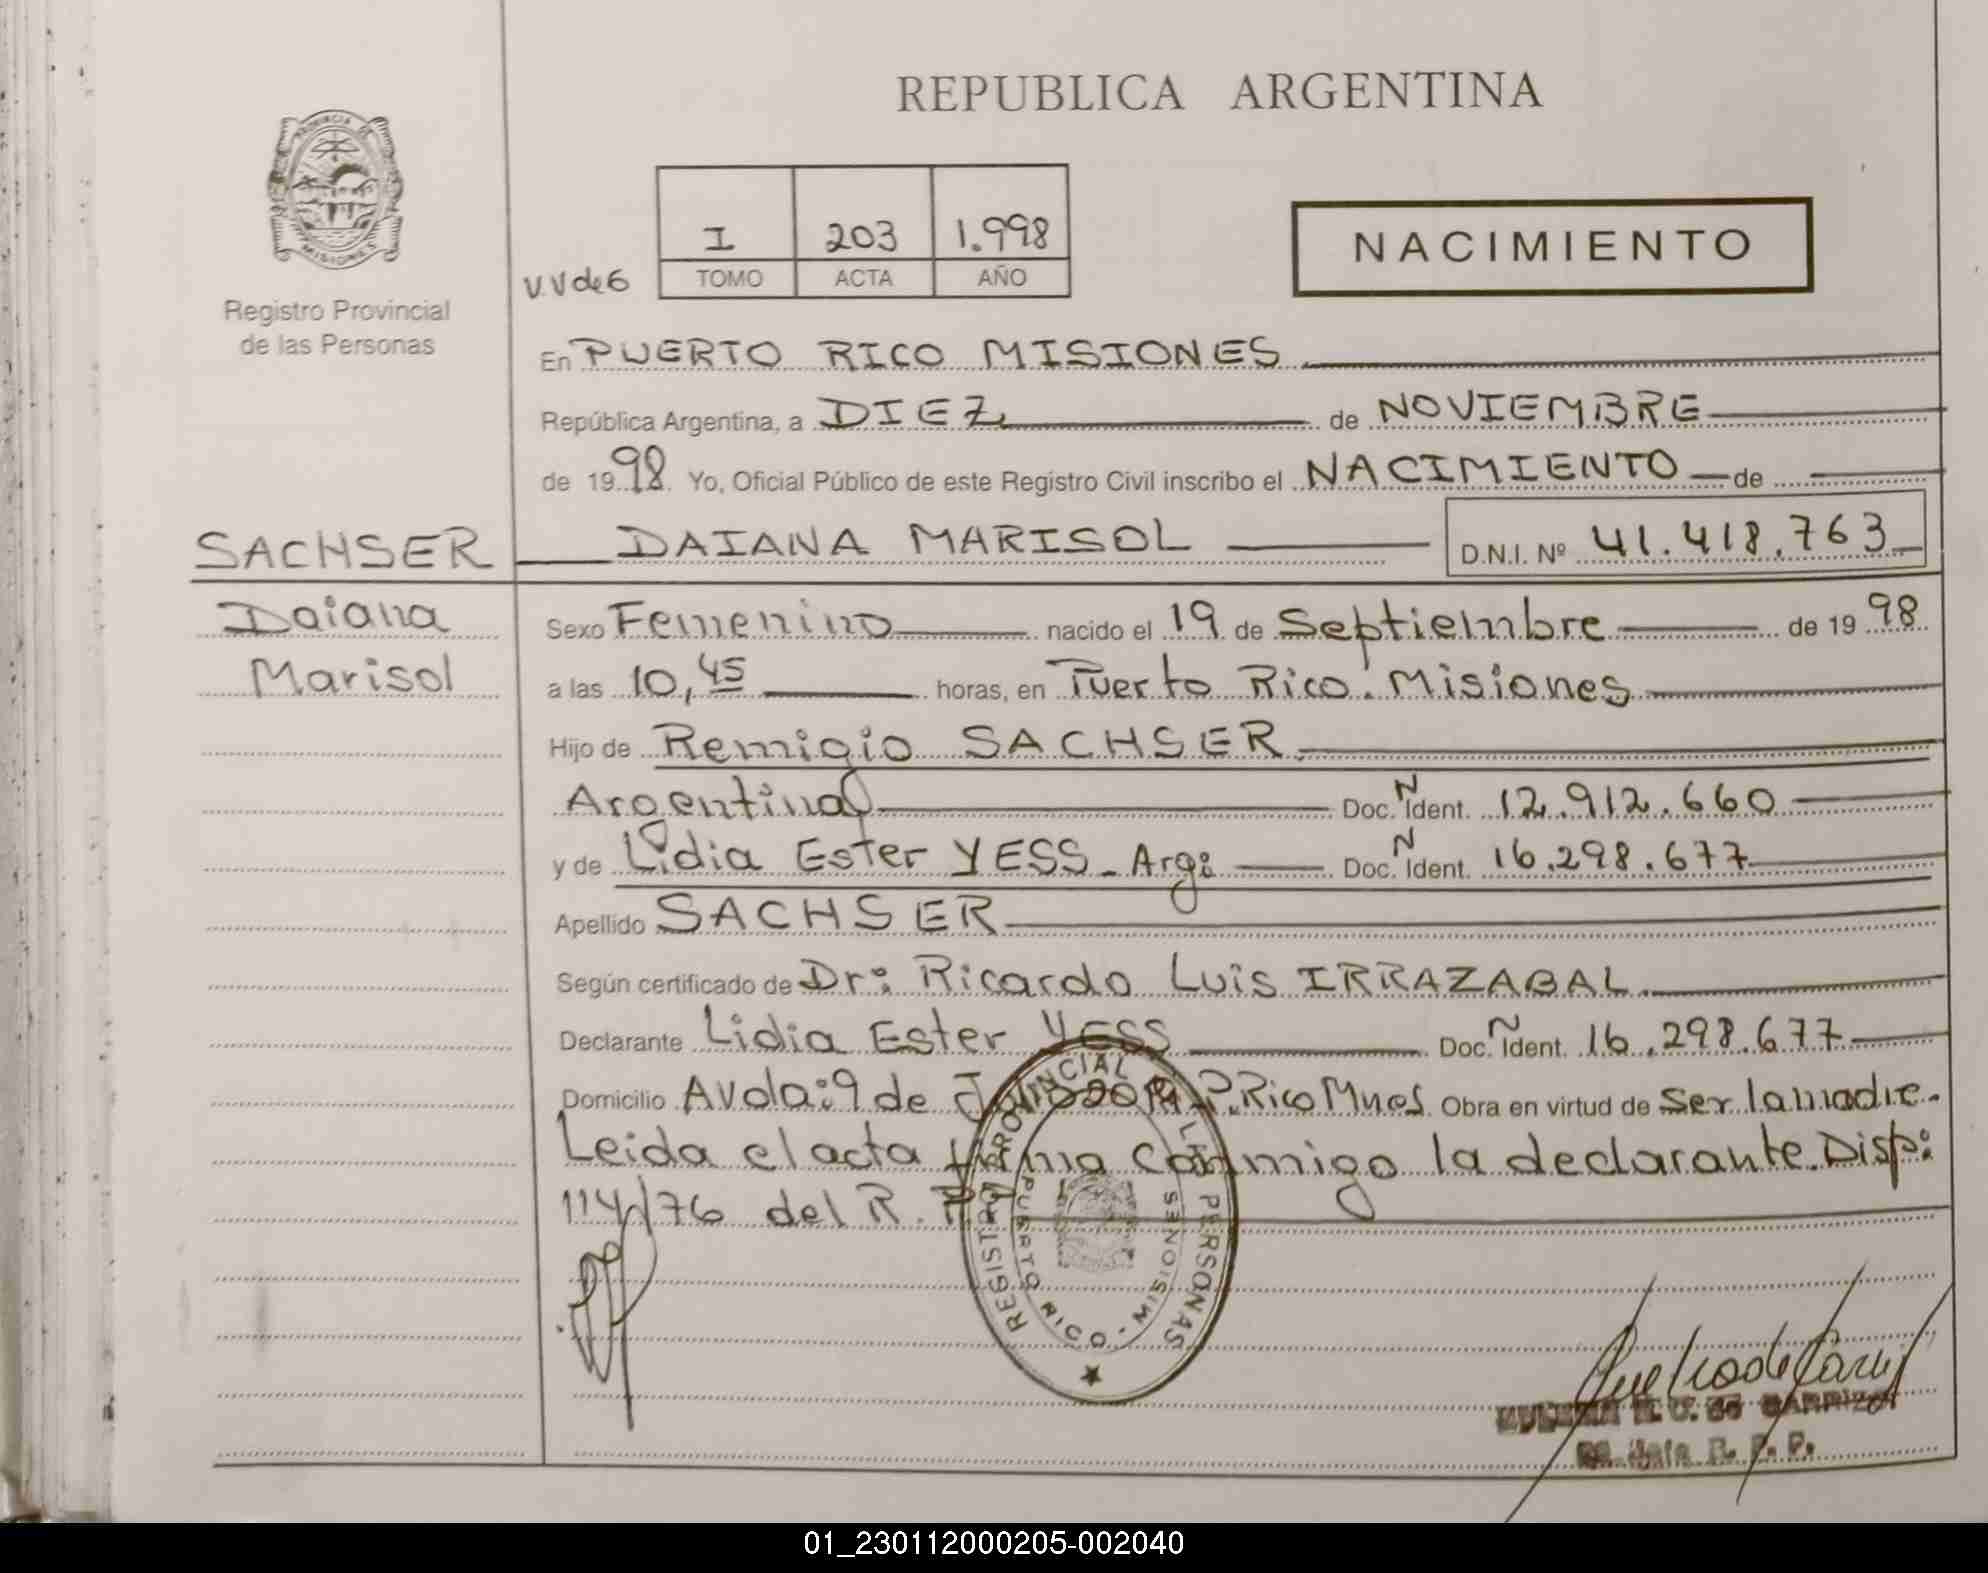 REPUBLICA ARGENTINA
PROVINCIA DE
MISIONES
Registro Provincial
de las Personas
I 203 1.998
TOMO ACTA AÑO
V.V de 6
NACIMIENTO
En PUERTO RICO MISIONES
República Argentina, a DIEZ de NOVIEMBRE
de 1998 Yo, Oficial Público de este Registro Civil inscribo el NACIMIENTO de
SACHSER DAIANA MARISOL D.N.I. Nº 41.418.763
Daiana
Marisol
Sexo Femenino nacido el 19 de Septiembre de 1998
a las 10,45 horas, en Puerto Rico. Misiones
Hijo de Remigio SACHSER
Argentina Doc. N Ident. 12.912.660
y de Lidia Ester YESS - Arg: Doc. N Ident. 16.298.677
Apellido SACHSER
Según certificado de Dr: Ricardo Luis IRRAZABAL
Declarante Lidia Ester YESS Doc. N Ident. 16.298.677
Domicilio Avda: 9 de Julio P. Rico Mnes Obra en virtud de Ser la madre.
Leida el acta firma conmigo la declarante. Disp:
114/76 del R.
REGISTRO PROVINCIAL DE LAS PERSONAS
PUERTO RICO - MISIONES
DE CARRIZO
Jefe R. P. P.
01_230112000205-002040